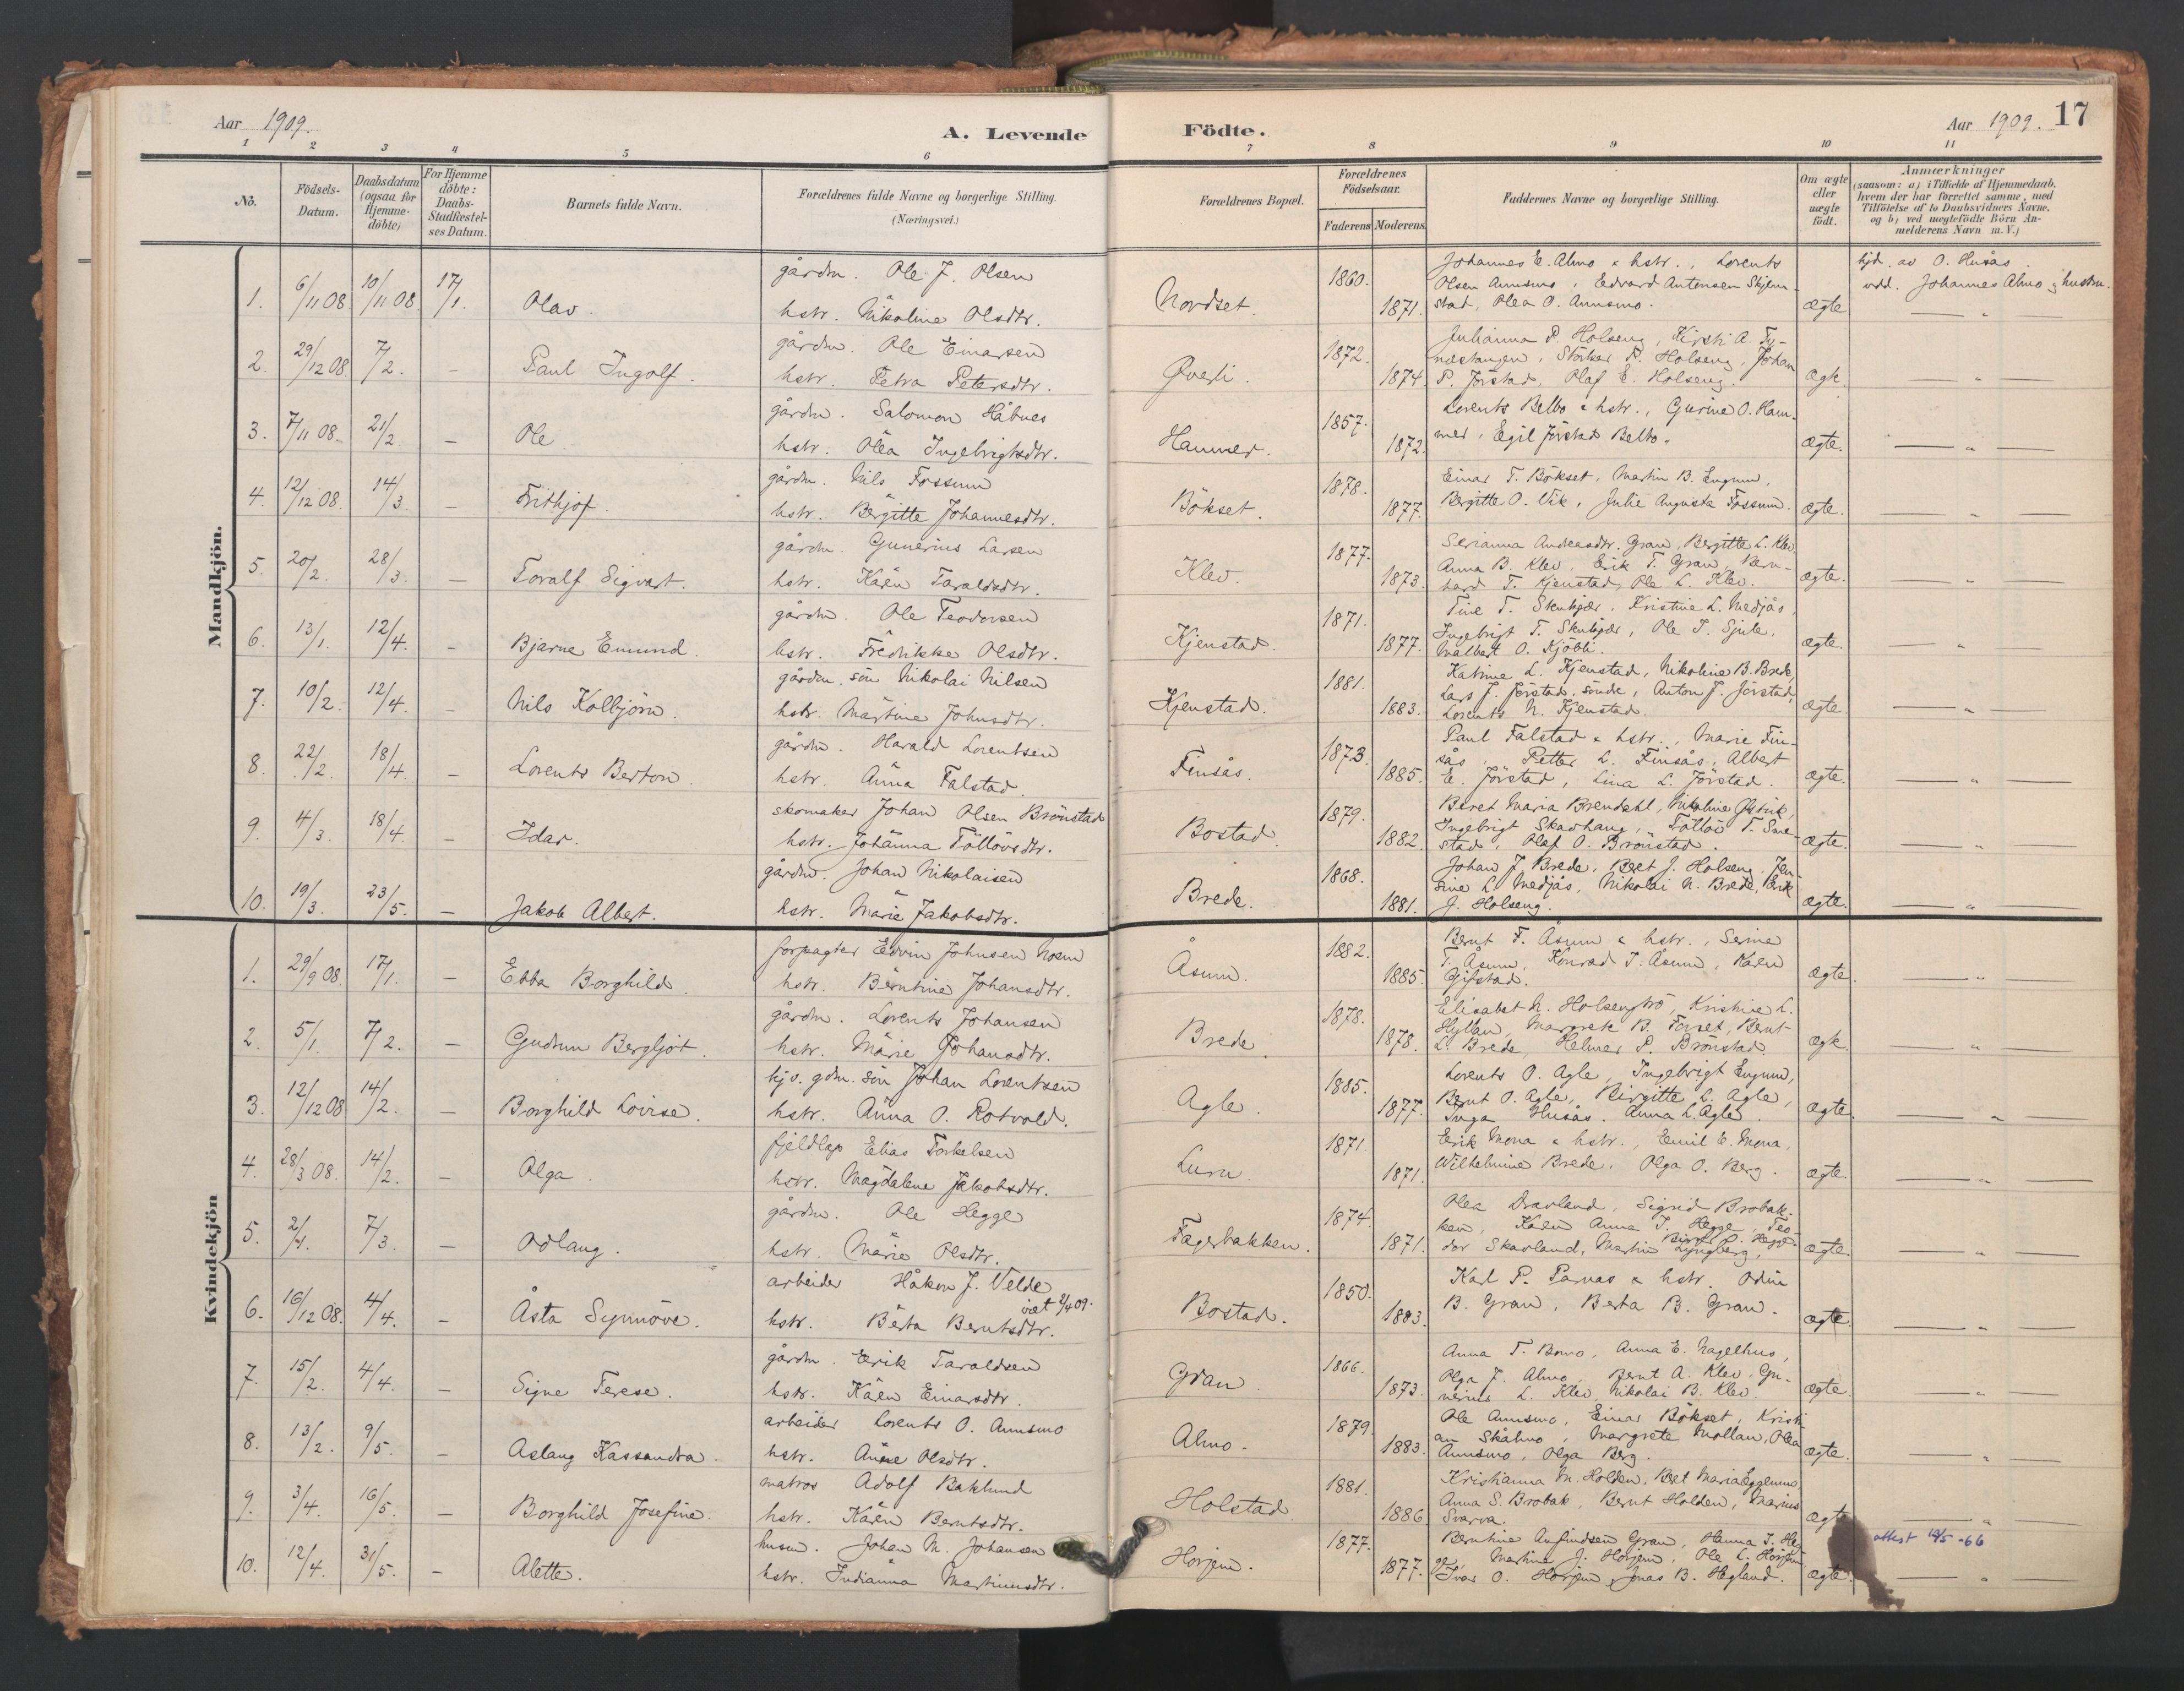 Aar 1909.
A. Levende
Födte.
Aar 1909.
17
1 2 3 4 5 6 7 8 9 10 11
No.
Födsels-Datum.
Daabsdatum (ogsaa for Hjemme-döbte)
For Hjemme döbte: Daabs-Stadfæstel-ses Datum.
Barnets fulde Navn.
Forældrenes fulde Navne og borgerlige Stilling. (Næringsvei.)
Forældrenes Bopæl.
Forældrenes Födselsaar.
Faderens Moderens
Faddernes Navne og borgerlige Stilling.
Om ægte eller uægte födt.
Anmærkninger
(saasom: a) i Tilfælde af Hjemmedaab.
hvem der har forrettet samme, med
Tilföielse af to Daabsvidners Navne.
og b) ved uægtefödte Börn An-
melderens Navn m. V.)
Mandkjön.
1. 6/11 08 10/11 08 17/1. Olav. gårdm. Ole J. Olsen
hstr. Nikoline Olsdtr.
Nordset. 1860. 1871.
Johannes E. Almo & hstr., Lorents
Olsen Annsmo, Edvard Antonsen Skjem-
stad, Olea O. Annsmo. ægte
hjd. av O. Husås.
vdd. Johannes Almo og hustru.
2. 29/12 08 7/2. - Paul Ingolf. gårdm. Ole Einarsen
hstr. Petra Petersdtr.
Øverli. 1872. 1874.
Julianna P. Holseng, Kirsti A. Ty-
næstangen, Störker P. Holseng, Johan
P. Jörstad, Olaf E. Holseng. ægte.
3. 7/11 08. 21/2. - Ole gårdm. Salomon Håbnes
hstr. Olea Ingebrigtsdtr.
Hammer. 1857. 1872.
Lorents Belbo & hstr., Gurine O. Ham-
mer, Egil Jörstad Belbo. ægte.
4. 12/12 08. 14/3. - Frithjof. gårdm. Nils Fossum
hstr. Bergitte Johannesdtr.
Bökset. 1878. 1877.
Einar T. Bökset, Martin B. Engum,
Bergitte O. Vik, Julie Augusta Fossum. ægte.
5. 20/2. 28/3. - Toralf Sigvart. gårdm. Gunerius Larsen
hstr. Karen Taraldsdtr.
Klev. 1877. 1873.
Serianna Andreasdtr. Gran, Bergitte L. Klev,
Anna B. Klev, Erik T. Gran, Bern-
hard T. Kjenstad, Ole L. Klev. ægte.
6. 13/1. 12/4. - Bjarne Emund. gårdm. Ole Teodorsen
hstr. Fredrikke Olsdtr.
Kjenstad. 1871. 1877.
Tine T. Skutjær. Kristine L. Medjås,
Ingebrigt T. Skutjær, Ole J. Sjule,
Valbert O. Kjöbli. ægte.
7. 10/2. 12/4. - Nils Kolbjörn. gårdm. sön Nikolai Nilsen
hstr. Martine Johnsdtr.
Kjenstad. 1881. 1883.
Katrine L. Kjenstad, Nikoline B. Brede,
Lars J. Jörstad söndre, Anton J. Jörstad,
Lorents N. Kjenstad. ægte.
8. 22/2. 18/4. - Lorents Berton. gårdm. Harald Lorentsen
hstr. Anna Falstad.
Finsås. 1873. 1885.
Paul Falstad & hstr., Marie Fin-
sås, Petter L. Finsås, Albert
E. Jörstad, Lina L. Jörstad. ægte.
9. 4/3. 18/4 - Idar. skomaker Johan Olsen Brönstad
hstr. Johanna Tollövsdtr.
Bostad. 1879. 1882.
Beret Maria Brendahl, Nikoline Østvik,
Ingebrigt Skavhaug, Tollöv T. Sme-
stad, Olaf O. Brönstad. ægte.
10. 19/3. 23/5. - Jakob Albert. gårdm. Johan Nikolaisen
hstr. Marie Jakobsdtr.
Brede. 1868. 1881.
Johan J. Brede, Beret J. Holseng, Jen-
sine L. Medjås, Nikolai N. Brede, Erik
J. Holseng. ægte.
Kvindekjön
1. 29/9 08 17/1. - Ebba Borghild. forpagter Edvin Johnsen Moen
hstr. Berntine Johansdtr.
Åsum. 1882. 1885.
Bernt F. Åsum & hstr., Serine
T. Åsum, Konrad J. Åsum, Karen
Gifstad. ægte
2. 5/1. 7/2. - Gudrun Bergljot. gårdm. Lorents Johansen
hstr. Marie Johansdtr.
Brede. 1878. 1878.
Elisabet N. Holsengtrö, Kristine L.
Hyllan, Margrete B. Forset, Bernt
L. Brede, Helmer P. Brönstad. ægte.
3. 12/12 08 14/2. - Borghild Lovise. hjv. gdm. sön Johan Lorentsen
hstr. Anna O. Rotvold.
Agle. 1885. 1877.
Lorents O. Agle, Ingebrigt Engum,
Bernt O. Agle, Birgitte L. Agle,
Inga Husås. Anna L. Agle. ægte.
4. 28/3 08. 14/2. - Olga. fjeldlap Elias Torkelsen
hstr. Magdalene Jakobsdtr.
Luru. 1871. 1871.
Erik Mona & hstr., Emil E. Mona,
Wilhelmine Brede. Olga O. Berg. ægte.
5. 2/1. 7/3. - Odlaug. gårdm. Ole Hegge
hstr. Marie Olsdtr.
Fagerbakken. 1874. 1871.
Olea Dravland, Sigrid Brobak-
ken, Karen Anna J. Hegge, Teo-
dor Skavland, Martin Ljungberg, ægte.
6. 16/12 08. 4/4. - Åsta Synnöve. arbeider Håkon J. Velde
viet 2/4 09.
hstr. Berta Berntsdtr.
Bostad. 1850. 1883.
Karl P. Parnas & hstr. Odin
B. Gran, Berta B. Gran. ægte.
7. 15/2. 4/4. - Signe Terese. gårdm. Erik Taraldsen
hstr. Karen Einarsdtr.
Gran 1866. 1873.
Anna T. Bomo, Anna E. Nagelhus,
Olga J. Almo, Bernt A. Klev, Gu-
nerius L. Klev, Nikolai B. Klev. ægte.
8. 13/2. 9/5. - Aslaug Kassandra. arbeider Lorents O. Annsmo
hstr. Anne Olsdtr.
Almo. 1879. 1883.
Ole Annsmo, Einar Bökset, Kristi
an Skålmo, Margrete Mollan, Olea
Annsmo, Olga Berg. ægte.
9. 3/4. 16/5. - Borghild Josefine. matros Adolf Baklund
hstr. Karen Berntsdtr.
Holstad 1881. 1886
Kristianna M. Holden, Beret Maria Eggenmo,
Anna S. Brobak, Bernt Holden, Marius
Svarva. ægte
10. 12/4. 31/5. - Alette. husm. Johan M. Johansen
hstr. Indianna Martinusdtr.
Horjem. 1877. 1877.
Berntine Anfindsen Gran, Hanna J. He-
ge, Martine J. Horjem, Ole L. Horjem,
Ivar O. Horjem, Jonas B. Hegland. ægte.
attest 12/5 -66